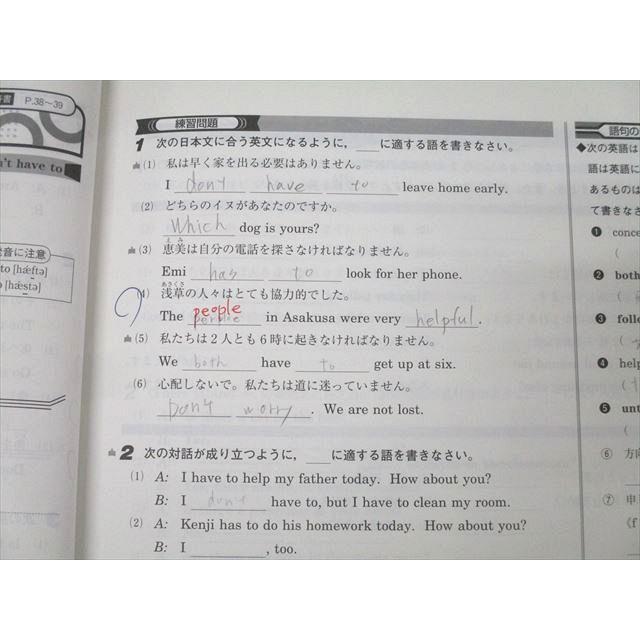 P.38～39
n't have to
発音に注意
to [hǽftə]
to [hǽstə]
練習問題
1 次の日本文に合う英文になるように，___に適する語を書きなさい。
(1) 私は早く家を出る必要はありません。
I don't have to leave home early.
(2) どちらのイヌがあなたのですか。
Which dog is yours?
(3) 恵美は自分の電話を探さなければなりません。
Emi has to look for her phone.
(4) 浅草の人々はとても協力的でした。
people
The people in Asakusa were very helpful.
(5) 私たちは２人とも６時に起きなければなりません。
We both have to get up at six.
(6) 心配しないで。私たちは道に迷っていません。
Don't worry. We are not lost.
2 次の対話が成り立つように，___に適する語を書きなさい。
(1) A: I have to help my father today. How about you?
B: I don't have to, but I have to clean my room.
(2) A: Kenji has to do his homework today. How about you?
B: I ___, too.
語句の
◆次の英語は
語は英語に
あるものは
て書きなさ
❶ conce
❷ both
❸ follo
❹ help
❺ unt
⑥ 方向
⑦ 申し
《f